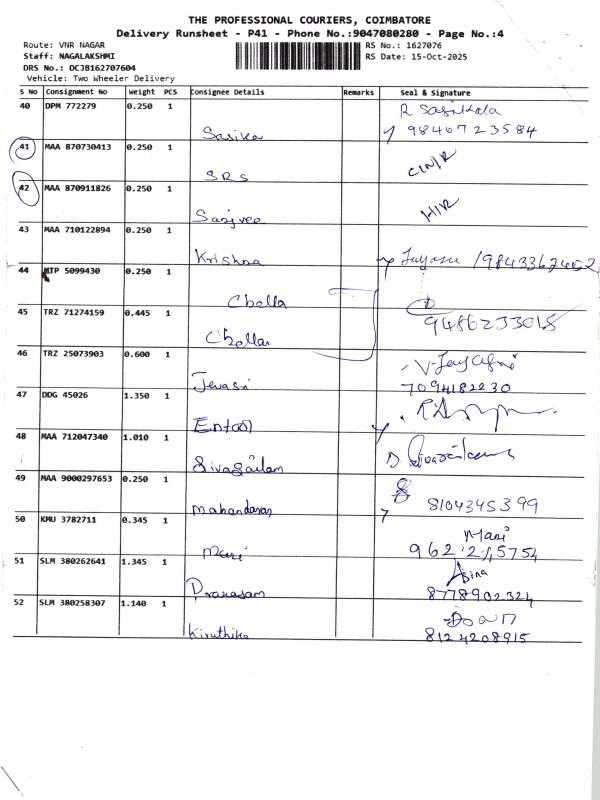 THE PROFESSIONAL COURIERS, COIMBATORE
Delivery Runsheet - P41 - Phone No.:9047080280 - Page No.:4
Route: VNR NAGAR
Staff: NAGALAKSHMI
DRS No.: DCJB162707604
Vehicle: Two Wheeler Delivery
RS No.: 1627076
RS Date: 15-Oct-2025
S No Consignment No Weight PCS Consignee Details Remarks Seal & Signature
40 DPM 772279 0.250 1 Sasika R Sasikala
9840723584
41 MAA 870730413 0.250 1 SRS
42 MAA 870911826 0.250 1 Sanjvee
43 MAA 710122894 0.250 1 Krishna
44 MTP 5099430 0.250 1 Chella
45 TRZ 71274159 0.445 1 Chellar
9486233018
46 TRZ 25073903 0.600 1 Jevasri
7094182230
47 DDG 45026 1.350 1
48 MAA 712047340 1.010 1 Sivasailam
49 MAA 9000297653 0.250 1
8104345399
50 KMU 3782711 0.345 1 Mari Mari
51 SLM 380262641 1.345 1
8778902324
52 SLM 380258307 1.140 1 Kiruthika
8124208915